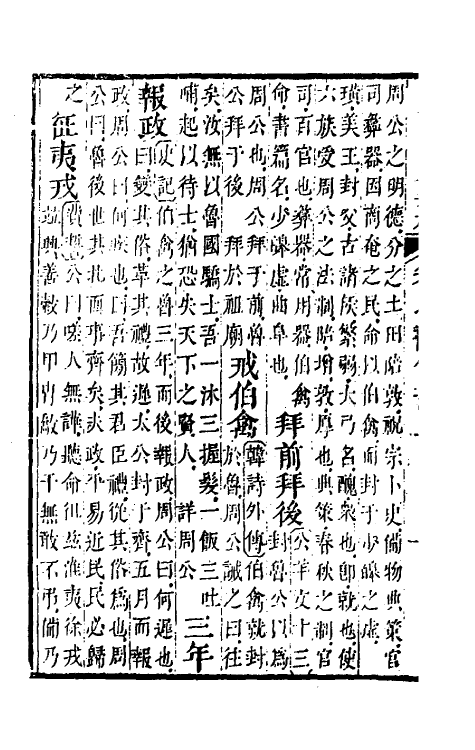 周公之明德分之土田陪敦祝宗卜史備物典策官
司彝器因商奄之民命以伯禽而封于少皞之虛
璜美玉封父古諸侯繁弱大弓名醜衆也即就也使
六族受周公之法制陪增敦厚也典策春秋之制官
司百官也彝器常用器伯禽 拜前拜後 公羊文十三
命書篇名少皞虛曲阜也 封魯公以爲
周公也周公拜于前魯 戒伯禽 韓詩外傳伯禽就封
公拜于後 拜於祖廟 於魯周公誡之曰往
矣汝無以魯國驕士吾一沐三握髮一飯三吐
哺起以待士猶恐失天下之賢人 詳周公 三年
報政 史記伯禽之魯三年而後報政周公曰何遲也
曰變其俗革其禮故遲太公封于齊五月而報
政周公曰何疾也曰吾簡其君臣禮從其俗爲也周
公曰魯後世其北面事齊矣夫政平易近民民必歸
之 征夷戎 費誓公曰嗟人無譁聽命徂玆淮夷徐戎
並興善敹乃甲冑敿乃干無敢不弔備乃